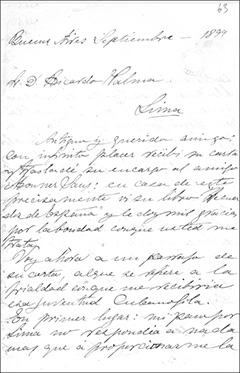 63
Buenos Aires Septiembre - 1899
S. D. Ricardo Palma
Lima
Antiguo y querido amigo:
con infinito placer recibí su carta
y trasladé su encargo al amigo
en casa de este
precisamente vi su libro Recuer
dos de España y le doy mil gracias
por la bondad con que usted me
trata.
Voy ahora a un parrafo de
su carta, al que se refiere a la
frialdad con que me recibiria
esa juventud Cubanofila.
En primer lugar: mi paso por
Lima no respondia á nada
mas que á proporcionarme la